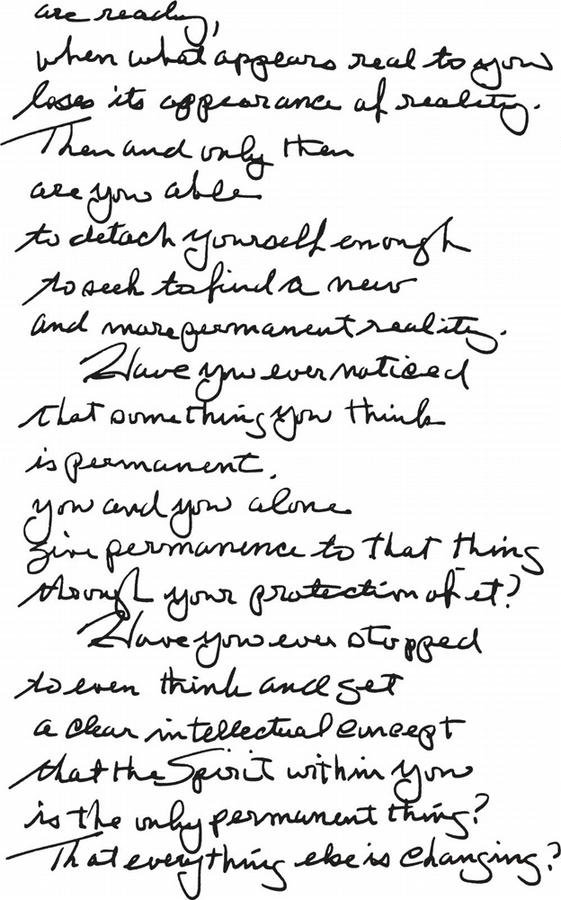 are ready,
when what appears real to you
loses its appearance of reality.
Then and only then
are you able
to detach yourself enough
to seek to find a new
and more permanent reality.
Have you ever noticed
that something you think
is permanent,
you and you alone
give permanence to that thing
though your protection of it?
Have you ever stopped
to even think and get
a clear intellectual concept
that the Spirit within you
is the only permanent thing?
That everything else is changing?